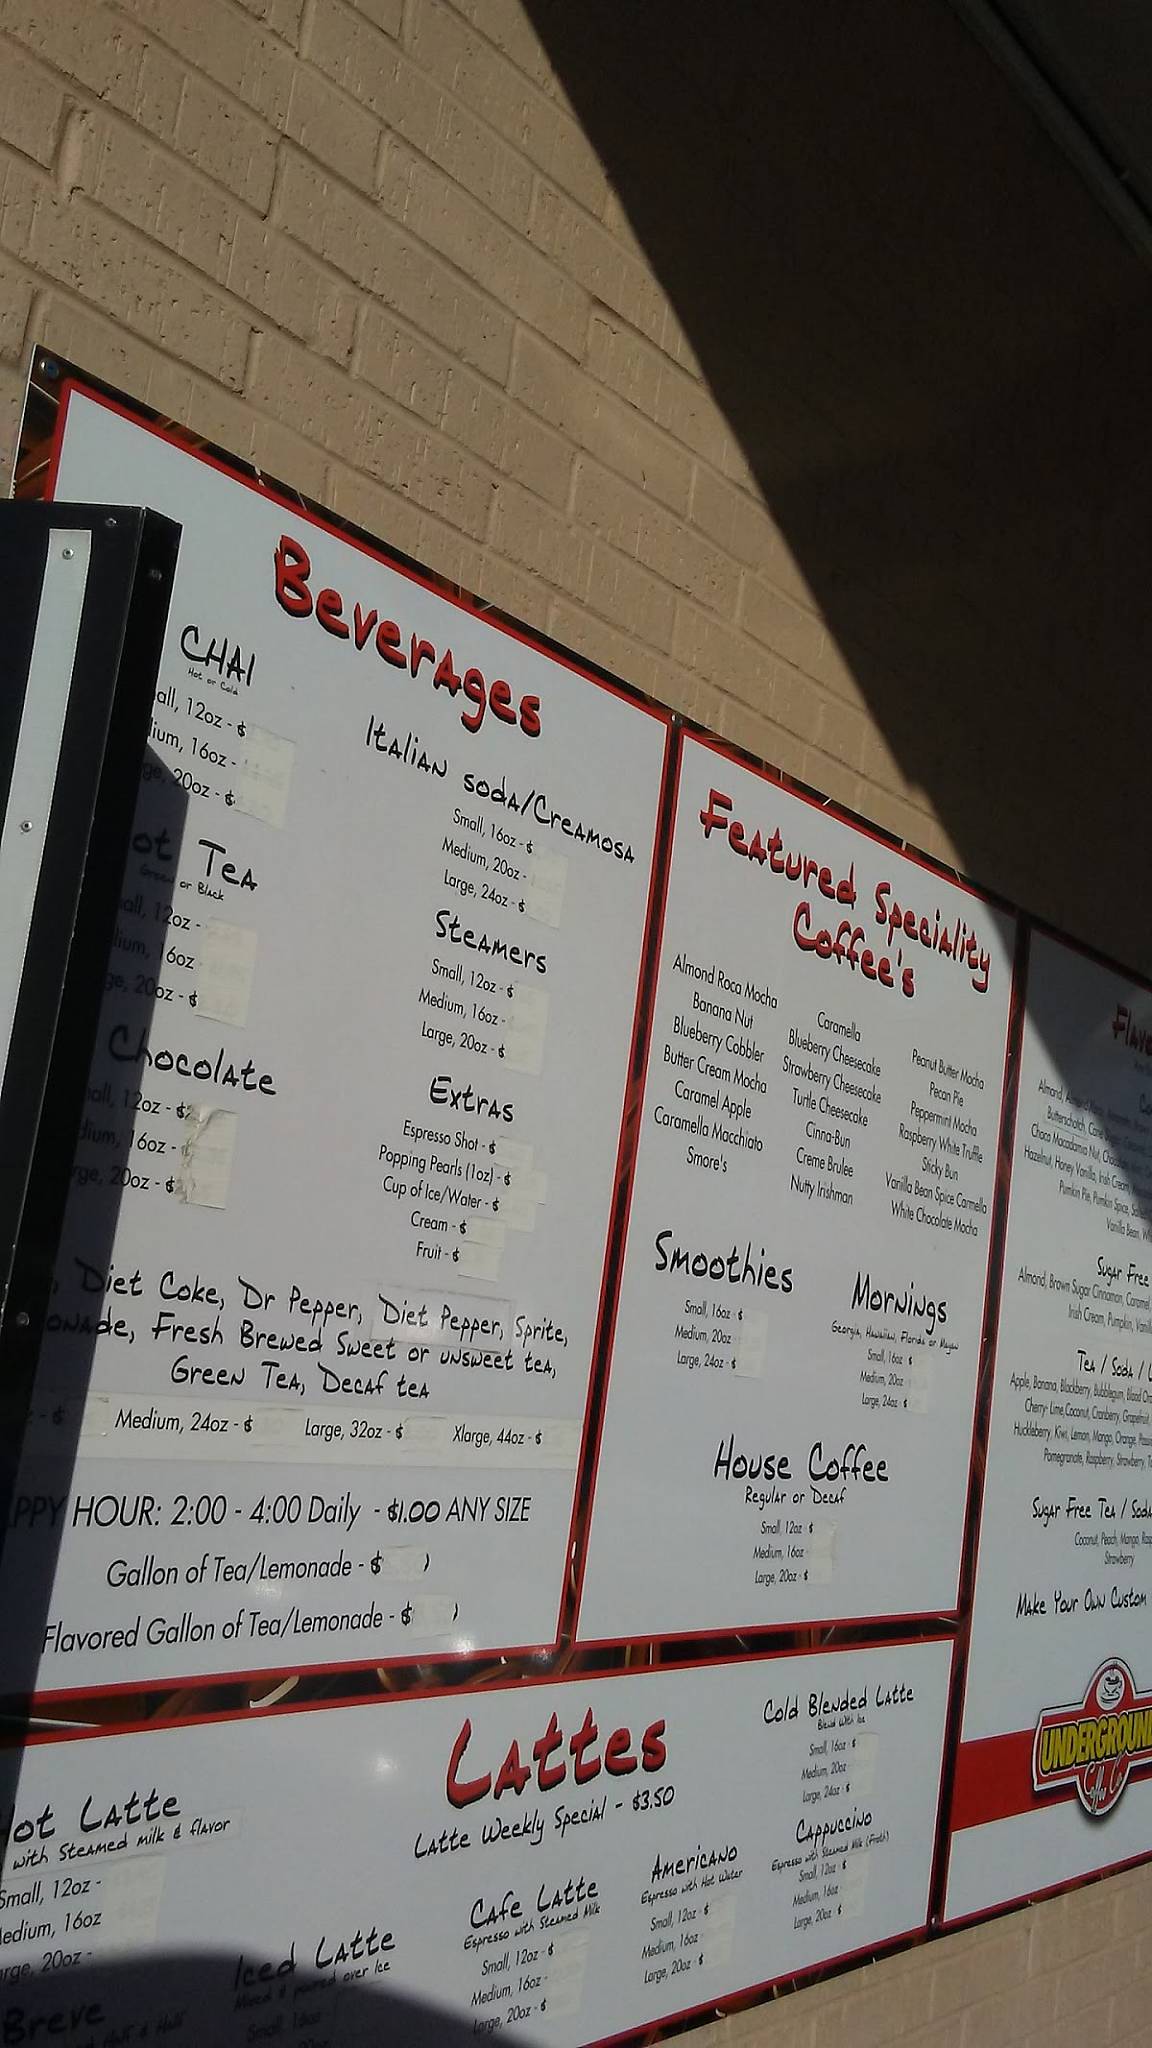 Beverages
CHAI
Hot or Cold
all, 12oz - $
ium, 16oz -
ge, 20oz - $
ot Tea
Green or Black
all, 12oz -
lium, 16oz
ge, 20oz - $
Chocolate
all, 12oz - $
dium, 16oz -
rge, 20oz - $
Italian soda/Creamosa
Small, 16oz - $
Medium, 20oz -
Large, 24oz - $
Steamers
Small, 12oz - $
Medium, 16oz -
Large, 20oz - $
Extras
Espresso Shot - $
Popping Pearls (1oz) - $
Cup of Ice/Water - $
Cream - $
Fruit - $
, Diet Coke, Dr Pepper, Diet Pepper, Sprite,
onade, Fresh Brewed Sweet or unsweet tea,
Green Tea, Decaf tea
- $ Medium, 24oz - $ Large, 32oz - $ Xlarge, 44oz - $
PPY HOUR: 2:00 - 4:00 Daily - $1.00 ANY SIZE
Gallon of Tea/Lemonade - $ )
Flavored Gallon of Tea/Lemonade - $ )
Featured Speciality
Coffee's
Almond Roca Mocha
Banana Nut
Blueberry Cobbler
Butter Cream Mocha
Caramel Apple
Caramella Macchiato
Smore's
Caramella
Blueberry Cheesecake
Strawberry Cheesecake
Turtle Cheesecake
Cinna-Bun
Creme Brulee
Nutty Irishman
Peanut Butter Mocha
Pecan Pie
Peppermint Mocha
Raspberry White Truffle
Sticky Bun
Vanilla Bean Spice Carmella
White Chocolate Mocha
Smoothies
Small, 16oz - $
Medium, 20oz
Large, 24oz - $
Mornings
Georgia, Hawaiian, Florida or Mayan
Small, 16oz - $
Medium, 20oz
Large, 24oz - $
House Coffee
Regular or Decaf
Small, 12oz - $
Medium, 16oz
Large, 20oz - $
Flavo
Almond,
Butterscotch,
Choco Macadamia Nut,
Hazelnut, Honey Vanilla, Irish Cream,
Pumpkin Pie, Pumpkin Spice,
Vanilla Bean,
Sugar Free
Almond, Brown Sugar Cinnamon, Caramel,
Irish Cream, Pumpkin, Vanill
Tea / Soda /
Apple, Banana, Blackberry, Bubblegum, Blood Ora
Cherry-Lime, Coconut, Cranberry, Grapefruit
Huckleberry, Kiwi, Lemon, Mango, Orange, Passi
Pomegranate, Raspberry, Strawberry,
Sugar Free Tea / Soda
Coconut, Peach, Mango, Rasp
Strawberry
Make Your Own Custom
UNDERGROUND
Coffee Co
Lattes
Latte Weekly Special - $3.50
Hot Latte
with Steamed milk & flavor
Small, 12oz -
Medium, 16oz
arge, 20oz -
Breve
Iced Latte
Mixed & poured over Ice
Small, 16oz
20oz
Cafe Latte
Espresso with Steamed Milk
Small, 12oz - $
Medium, 16oz -
Large, 20oz - $
Americano
Espresso with Hot Water
Small, 12oz - $
Medium, 16oz -
Large, 20oz - $
Cold Blended Latte
Blend with Ice
Small, 16oz - $
Medium, 20oz
Large, 24oz - $
Cappuccino
Espresso with Steamed Milk (Froth)
Small, 12oz - $
Medium, 16oz -
Large, 20oz - $